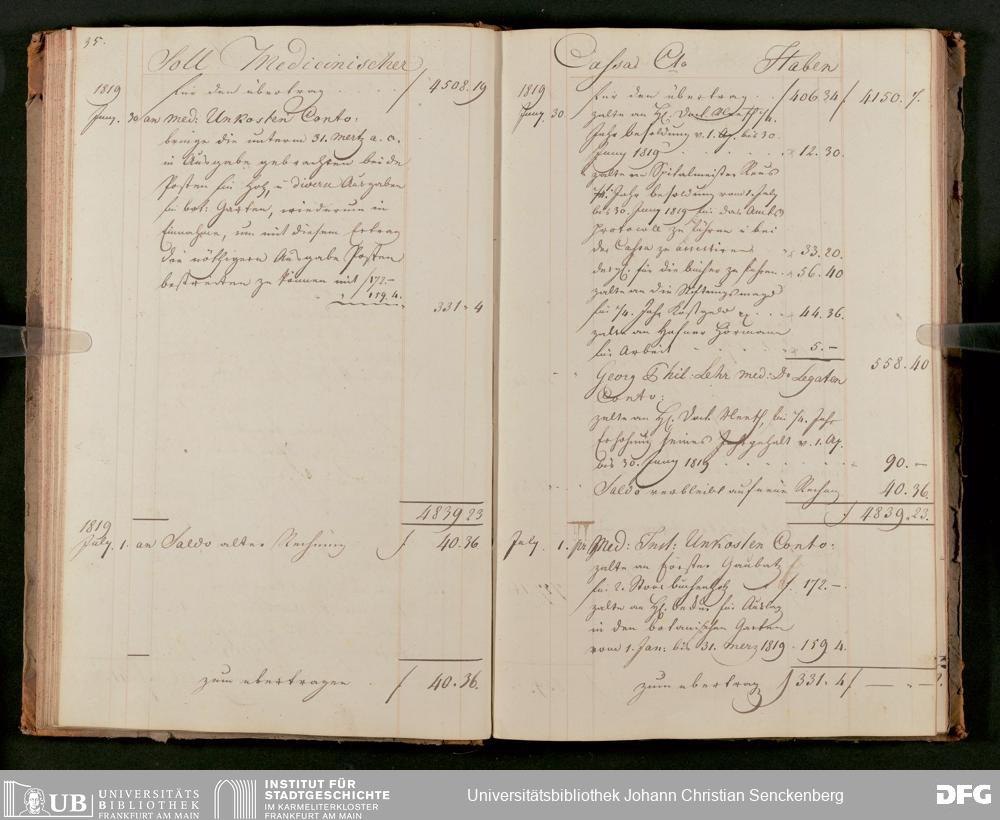 35.
Soll Medicinischer
1819 für den übertrag . . . . f 4508.19
Juny. 30 an med: Unkosten Conto:
bringe die unterm 31. Mertz a. c.
in Ausgabe gebrachten beide
Posten für Holz, u diverse Ausgaben
im bot: Garten, wiederum in
Einnahme, um mit diesem Ertrag
die nöthigern Ausgabe Posten
bestreiten zu können mit f 172.–
" 159.4. 331 " 4
4839.23
1819
July. 1. an Saldo alter Rechnung f 40.36
zum übertragen . f 40.36.
Cassa Cto Haben
1819 für den übertrag . . f 406.34 f 4150.7.
Juny. 30 zalte an H. Doct. 1/4.
Jahr besoldung v. 1. Ap. bis 30.
Juny 1819 . . . . " 12.30.
zalte an Spitalmeister Reus
1/4 Jahr besoldung vom 1.
bis 30. Juny 1819 für das Amts
Protocoll zu führen u bei
der Cassa zu assistiren " 33.20.
desgl. für die bücher zu führen . " 56.40
zalte an die Stiftungsmagd
für 1/4. Jahr Kostgeld . . . 44.36.
zalte an Hafner Hörmann
für Arbeit . . . . " 5.–
558.40
Georg Phil: Lehr med: Dr Legaten
Conto:
zalte an H. Doct. Neeff, für 1/4. Jahr
Erhöhung seines gehalt v. 1. Ap.
bis 30. Juny 1819 . . . . . 90.–
Saldo verbleibt auf neue Rechng 40.36.
f 4839.23.
July. 1. pr Med: Inst: Unkosten Conto:
zalte an Förster Gaubatz
für 2. buchenholz f. 172.–
zalte an H. für Auslag
in den botanischen Garten
vom 1. Jan: bis 31. Merz 1819 . 159 4.
zum übertrag f 331. 4 f — " —
UB UNIVERSITÄTS
BIBLIOTHEK
FRANKFURT AM MAIN
INSTITUT FÜR
STADTGESCHICHTE
IM KARMELITERKLOSTER
FRANKFURT AM MAIN
Universitätsbibliothek Johann Christian Senckenberg
DFG